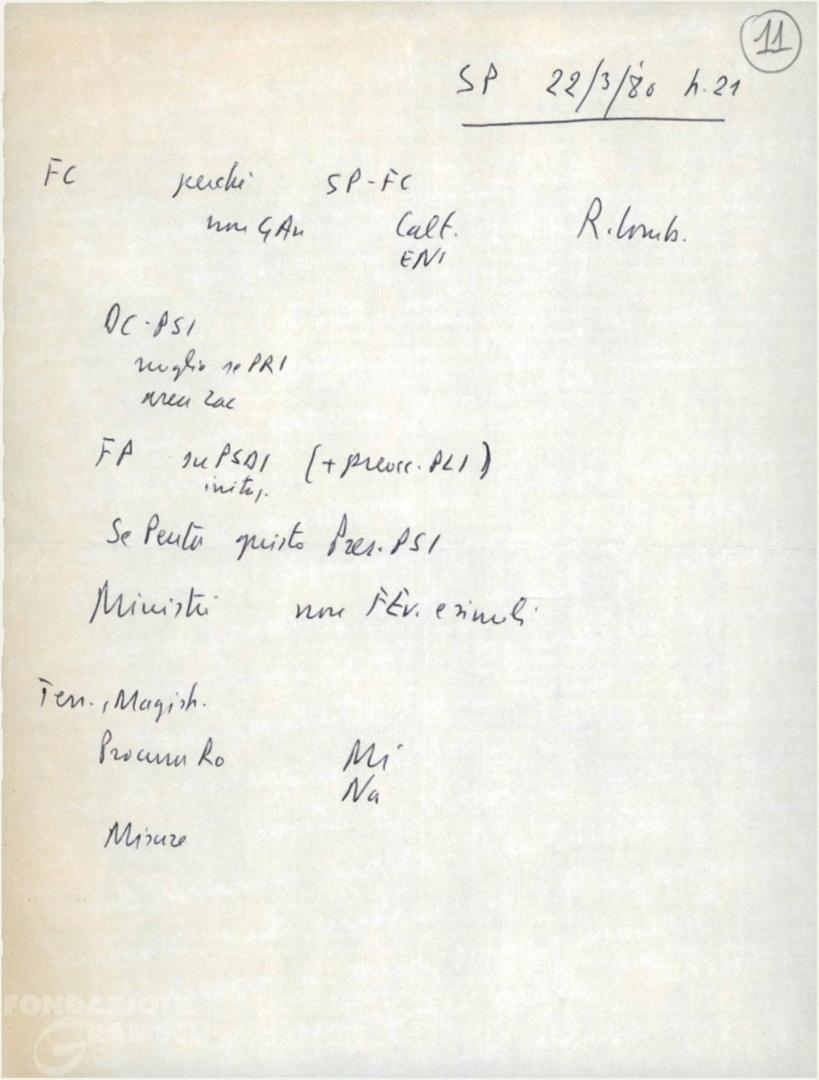 11
SP 22/3/80 h. 21
FC perché SP-FC
non GAn Calt. R. Lomb.
ENI
DC-PSI
meglio se PRI
area Zac
FP su PSDI (+ preocc. PLI)
Se Penta questo Pres. PSI
Ministri non FEv. e simili
Terr., Magistr.
Procura Ro Mi
Na
Misure
FONDAZIONE
GRAMSCI